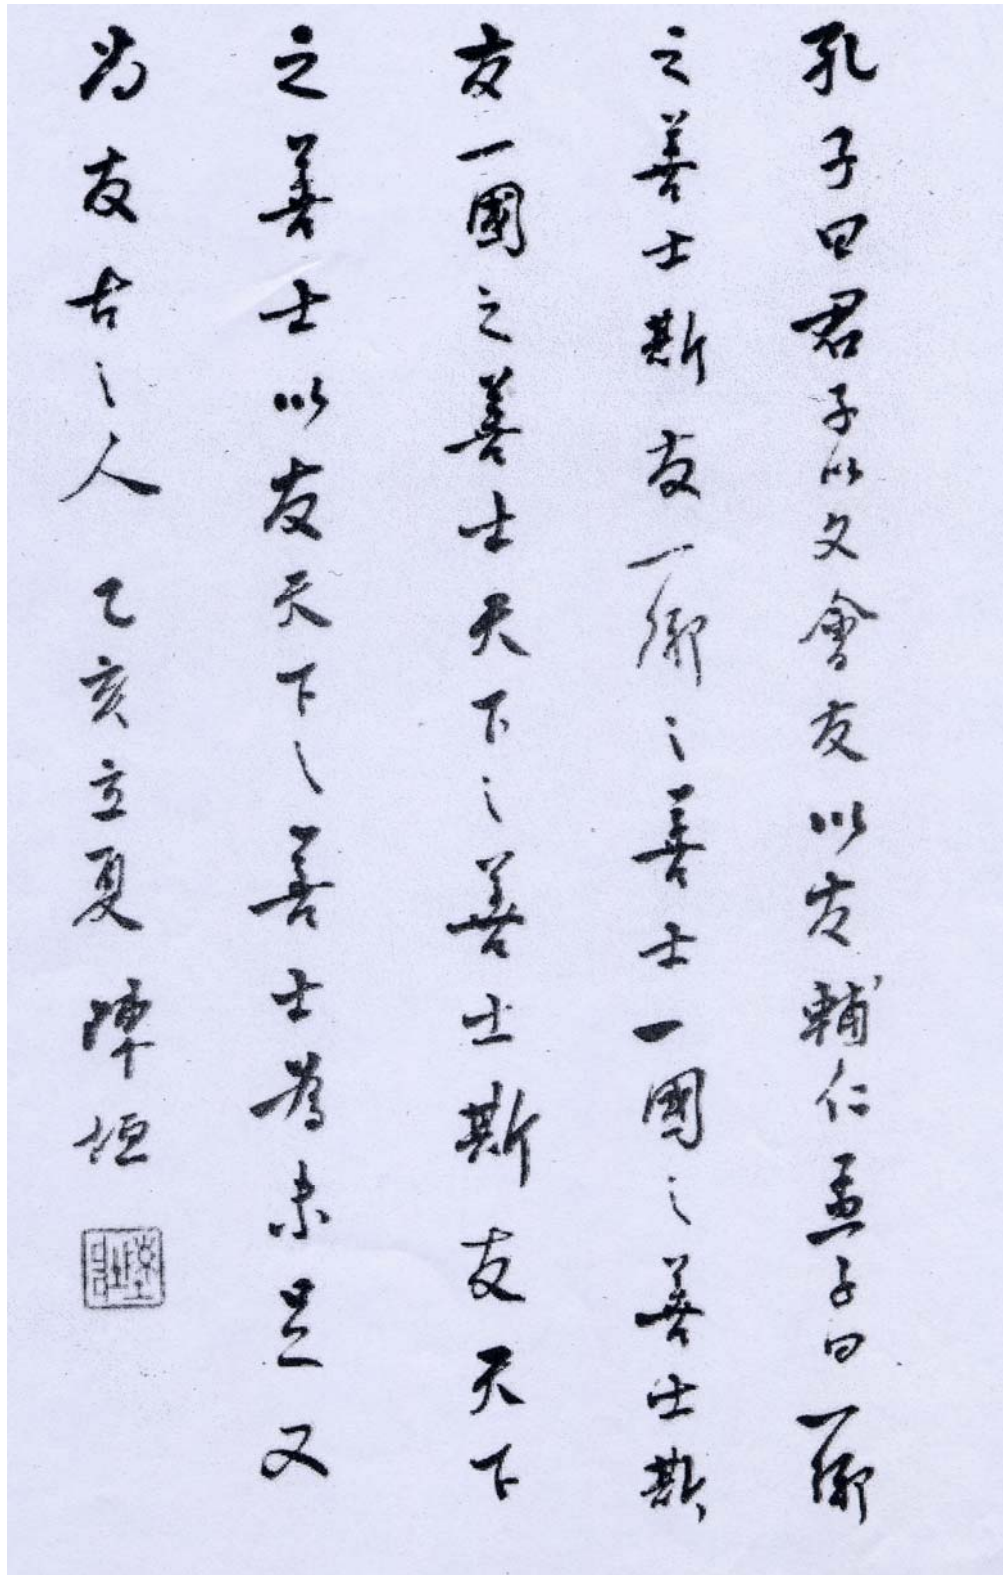 孔子曰君子以文會友以友輔仁孟子曰一鄉
之善士斯友一鄉之善士一國之善士斯
友一國之善士天下之善士斯友天下
之善士以友天下之善士為未足又
尚友古之人 乙亥立夏 陳垣